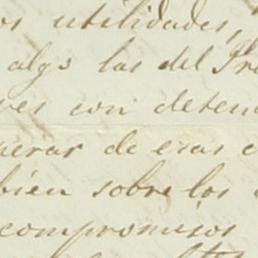 os utilidades,
algo las del Pre
ves con deten
perar de esas c
bien sobre los
compromisos